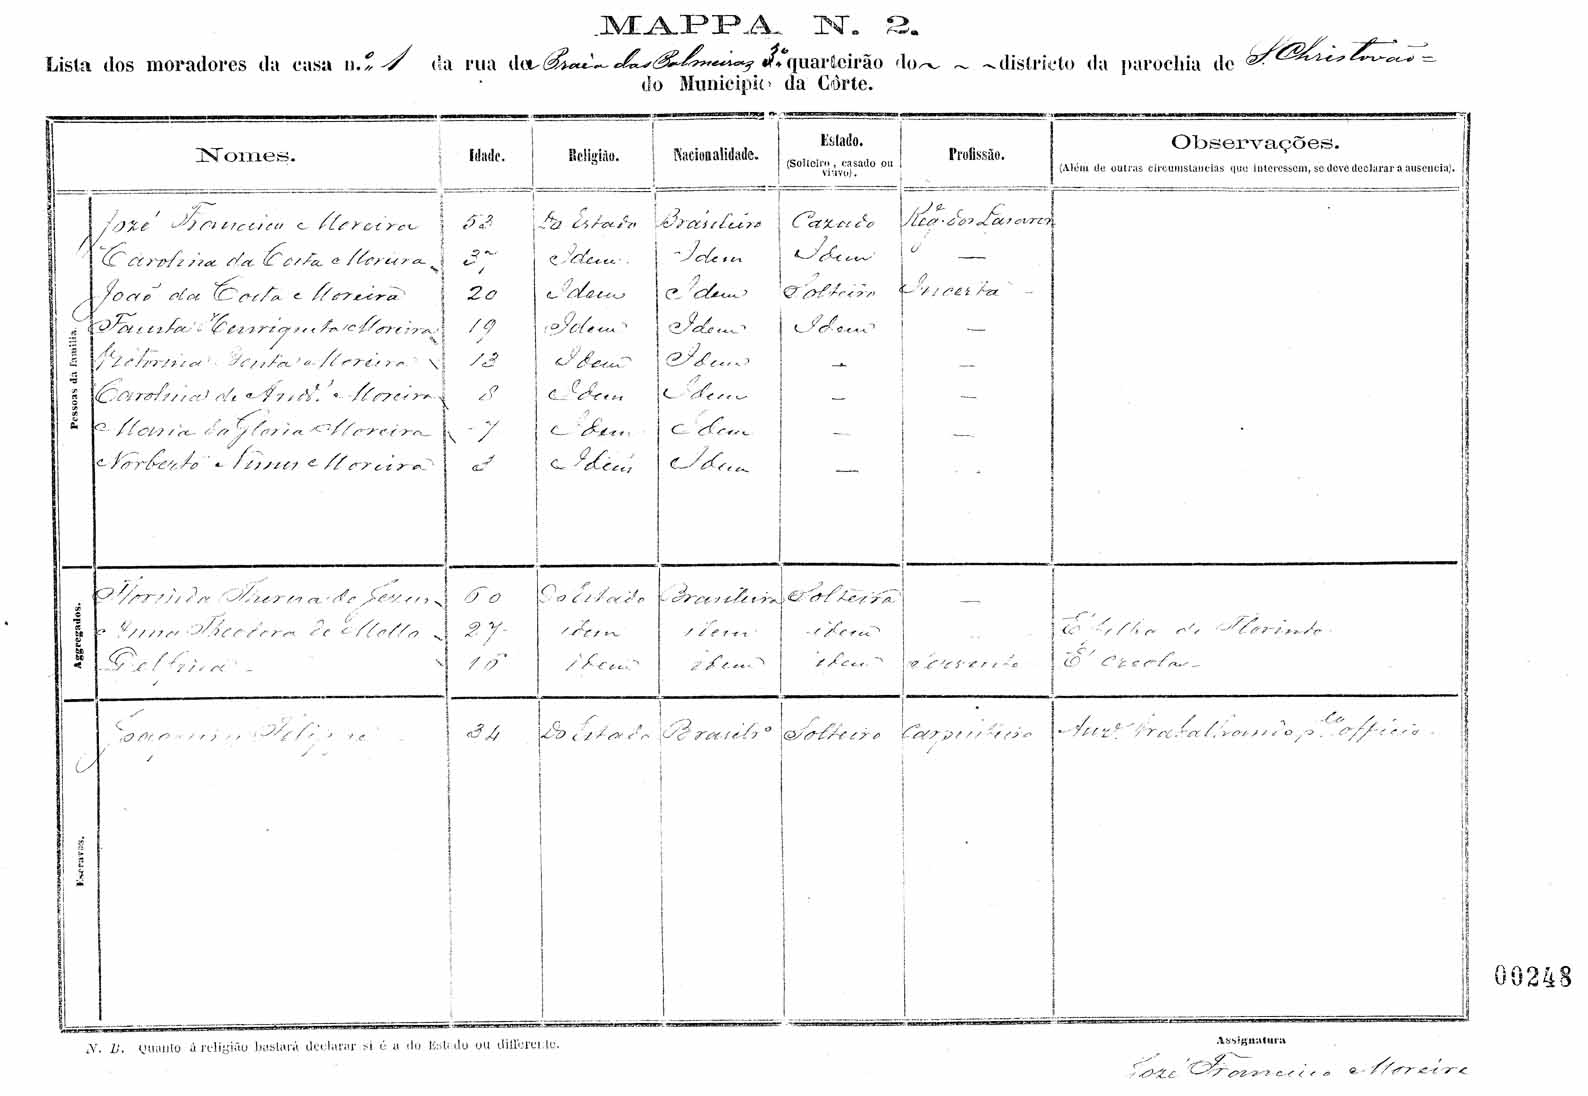 MAPPA N. 2.
Lista dos moradores da casa n.º 1 da rua da Praia das Palmeiras 3.º quarteirão do ~ ~ ~ districto da parochia de S. Christovão =
do Municipio da Côrte.
Nomes. Idade. Religião. Nacionalidade. Estado. (Solteiro, casado ou viuvo). Profissão. Observações. (Além de outras circumstancias que interessem, se deve declarar a ausencia).
Pessoas da familia.
Jozé Francisco Moreira 53 Do Estado Brasileiro Cazado Reg.e dos Lazaros
Carolina da Costa Moreira 37 Idem Idem Idem —
João da Costa Moreira 20 Idem Idem Solteiro Incerta -
Fausta Henriqueta Moreira 19 Idem Idem Idem —
Benta Moreira 13 Idem Idem — —
Carolina de Moreira 8 Idem Idem — —
Maria da Gloria Moreira 7 Idem Idem — —
Norberto Nunes Moreira 3 Idem Idem —
Aggregados.
Florinda Thereza de Jezus 60 Do Estado Brasileira Solteira —
Anna Theodora de Mello 27 idem idem idem É filha de Florinda
Delfina - 16 idem idem idem Servente É creola -
Escravos.
Joaquim Felippe 34 Do Estado Brasilr.o Solteiro Carpinteiro Auz.e trabalhando p.lo officio.
N. B. Quanto á religião bastará declarar si é a do Estado ou differente.
Assignatura
Jozé Francisco Moreira
00248